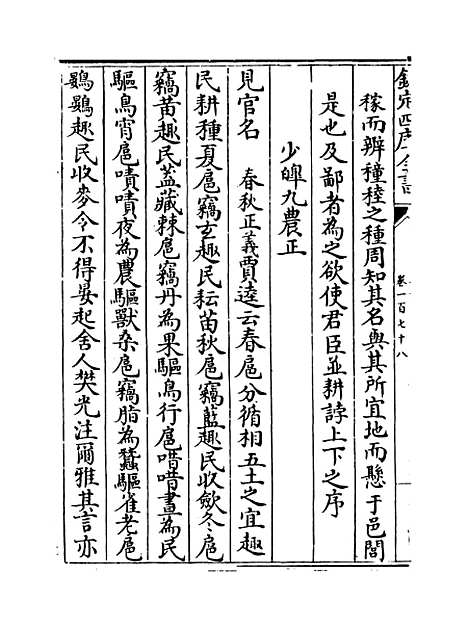 欽定四庫全書
卷一百七十八
稼而辨穜稑之種周知其名與其所宜地而懸于邑閭
是也及鄙者為之欲使君臣並耕誖上下之序
少皞九農正
見官名　春秋正義賈逵云春扈分循相五土之宜趣
民耕種夏扈竊玄趣民耘苗秋扈竊藍趣民收斂冬扈
竊黄趣民蓋藏棘扈竊丹為果驅鳥行扈唶唶晝為民
驅鳥宵扈嘖嘖夜為農驅獸桑扈竊脂為蠶驅雀老扈
鷃鷃趣民收麥令不得晏起舍人樊光注爾雅其言亦